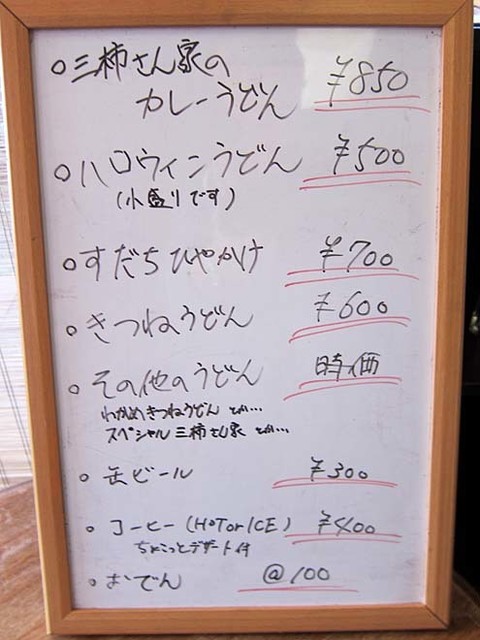 ○三柿さん家の
カレーうどん ¥850
○ハロウィンうどん ¥500
(小盛りです)
○すだちひやかけ ¥700
○きつねうどん ¥600
○その他のうどん 時価
わかめきつねうどん とか…
スペシャル三柿さん家 とか…
○缶ビール ¥300
○コーヒー(HOTorICE) ¥400
ちょこっとデザート付
○おでん @100